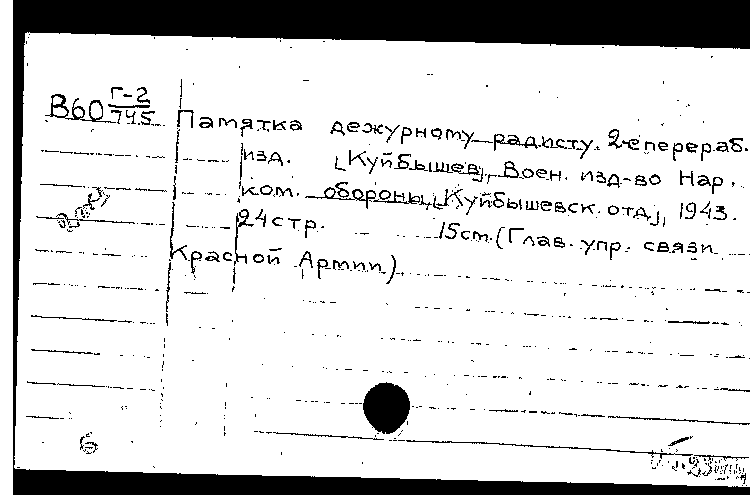 В60 Г-2
745
Памятка дежурному радисту. 2-е перераб.
изд. [Куйбышев], Воен. изд-во Нар.
ком. обороны, [Куйбышевск. отд], 1943.
24стр. 15см. (Глав. упр. связи
Красной Армии)
6